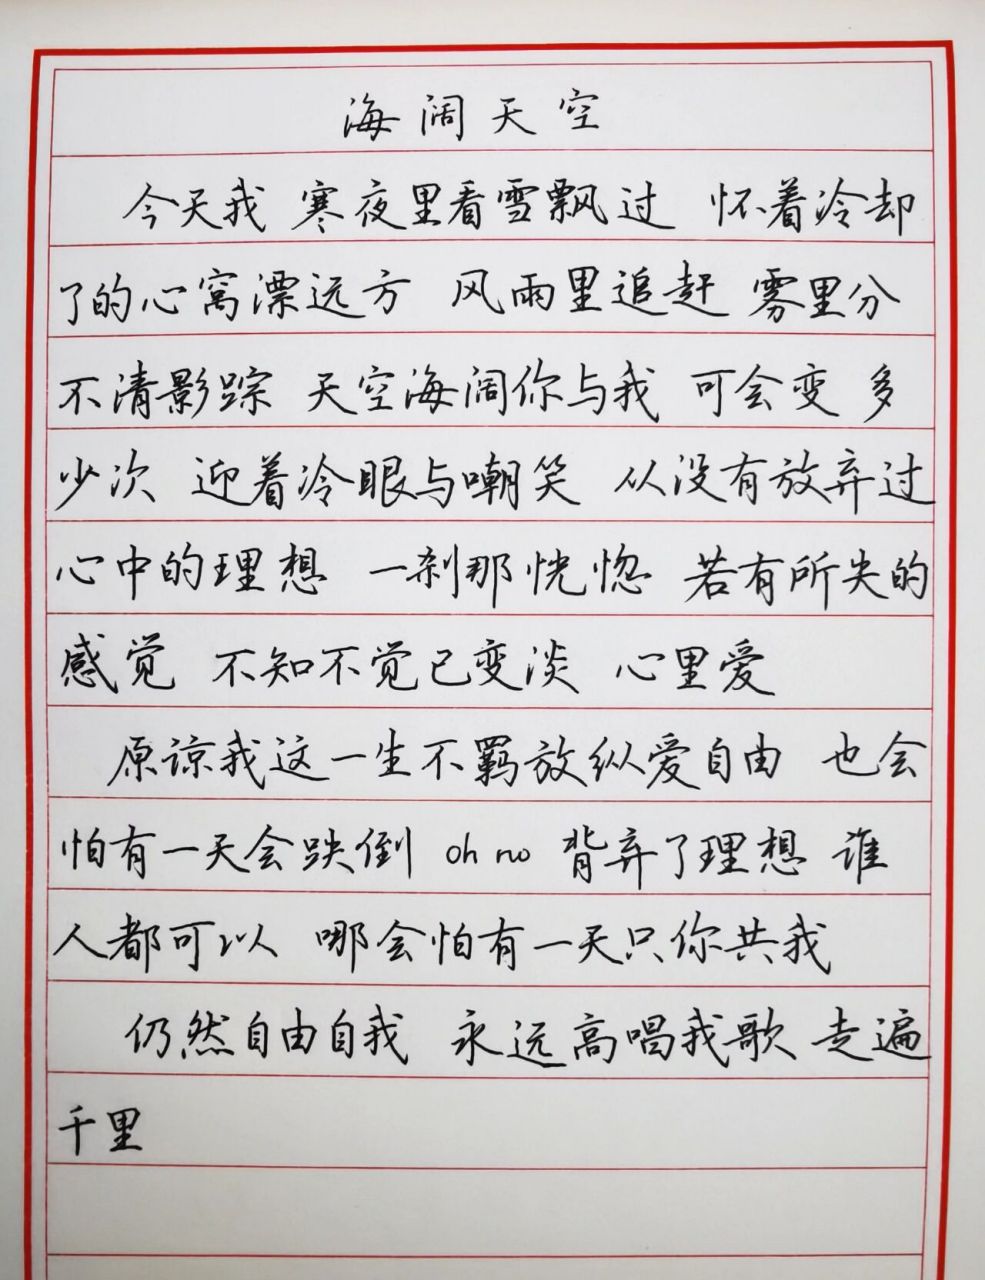 海阔天空
今天我 寒夜里看雪飘过 怀着冷却
了的心窝漂远方 风雨里追赶 雾里分
不清影踪 天空海阔你与我 可会变 多
少次 迎着冷眼与嘲笑 从没有放弃过
心中的理想 一刹那恍惚 若有所失的
感觉 不知不觉已变淡 心里爱
原谅我这一生不羁放纵爱自由 也会
怕有一天会跌倒 oh no 背弃了理想 谁
人都可以 哪会怕有一天只你共我
仍然自由自我 永远高唱我歌 走遍
千里